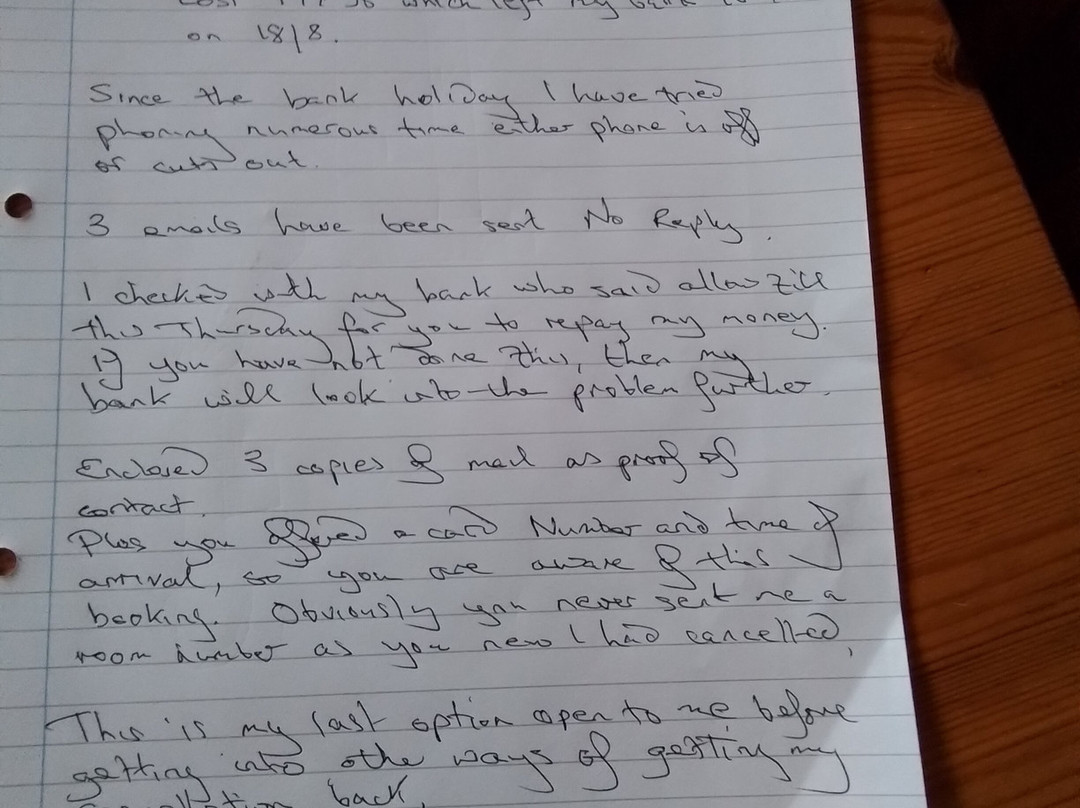 which left my bank
on 18/8.
Since the bank holiday I have tried
phoning numerous time either phone is off
or cuts out.
3 emails have been sent No Reply.
I checked with my bank who said allow till
this Thursday for you to repay my money.
If you have not done this, then my
bank will look into the problem further.
Enclosed 3 copies of mail as proof of
contact.
Plus you offered a card Number and time of
arrival, so you are aware of this
booking. Obviously you never sent me a
room number as you new I had cancelled,
This is my last option open to me before
getting into othe ways of getting my
back.